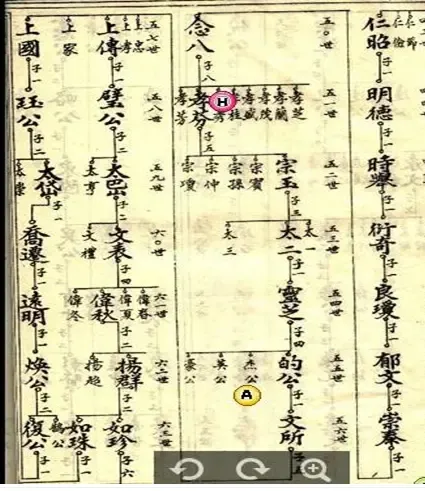 仁昭 仁節 仁儉
子一
明德
子一
時舉
子一
衍奇
子一
良瓊
子一
郁文
子一
崇奉
子一
五○世
念八
子八
五一世
孝芝 孝蘭 孝茂 孝威 孝桂 孝芬 孝芳
H
子五
五二世
宗玉 宗寶 宗孫 宗仲 宗瓊
子三
五三世
太一 太二 太三
子一
五四世
靈芝
子四
五五世
的公 杰公 英公 豪公
A
子一
五六世
文所
子五
五七世
上忠 上孝 上傳 上家 上國
子一 子一
五八世
璧公 珏公
子二 子二
五九世
太岊 太亨 太岱 太崇
子二 子一
六○世
文表 文禮 喬遷
子四 子一
六一世
偉春 偉夏 偉秋 偉冬 遠明
子二 子一
六二世
揚群 揚超 煥公
子二 子二
六三世
如珍 如珠 鸛公 復公
子六 子一 子一